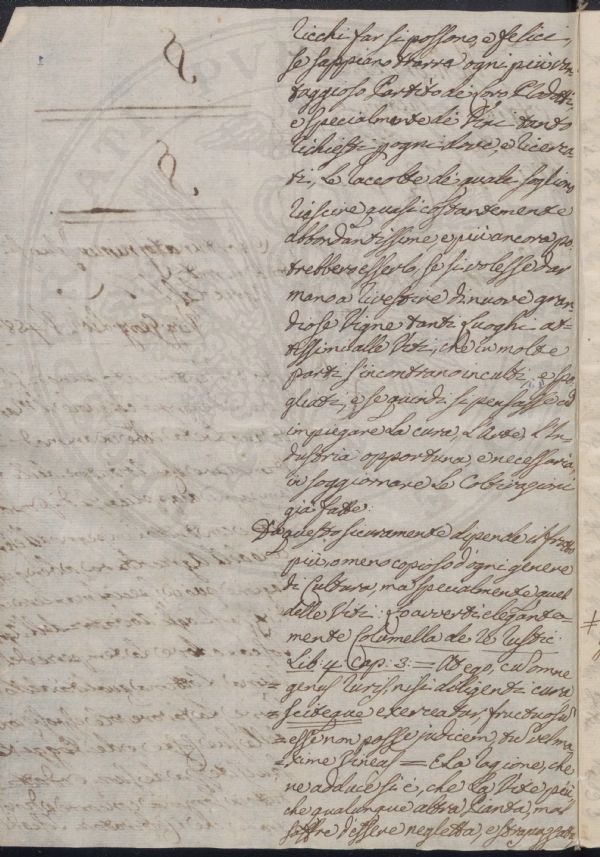 ricchi far si possono, e felici,
se sappiano trarre ogni più van
taggioso Partito de' loro Prodotti
e specialmente de' Vini tanto
richiesti pogni dove, e ricerca
ti, Le raccolte de' quali sogliono
riuscire quasi costantemente
abbondantissime e più ancora po
trebbero esserlo, se si volesse dar
mano a rivestire di nuove gran
diose Vigne tanti Luoghi at
tissimi alle Viti, che in molte
parti s'incontrano inculti, e spo
gliati, e se quindi si pensasse ad
impiegare La cura, L'Arte, L'In
dustria opportuna, e necessaria
in soggiornare Le Coltivazioni
già fatte.
Da questo sicuramente dipende il frutto
più, o meno copioso d'ogni genere
di Cultura, ma specialmente quel
delle Viti: Lo avvertì elegante=
mente Columella de Re Rustic:
Lib 4. Cap: 3. = At ego, cum omne
= genus ruris, nisi diligenti cura
= sciteque exerceatur fructuosum
= esse non posse judicem, tum vel ma
= xime Vineas = E la ragione, che
ne adduce si è, che La Vite, più
che qualunque altra Pianta, mal
soffre d'essere negletta, e strapazzata